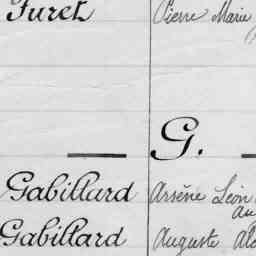 Furet Pierre Marie
G.
Gabillard Arsène Léon
Gabillard Auguste